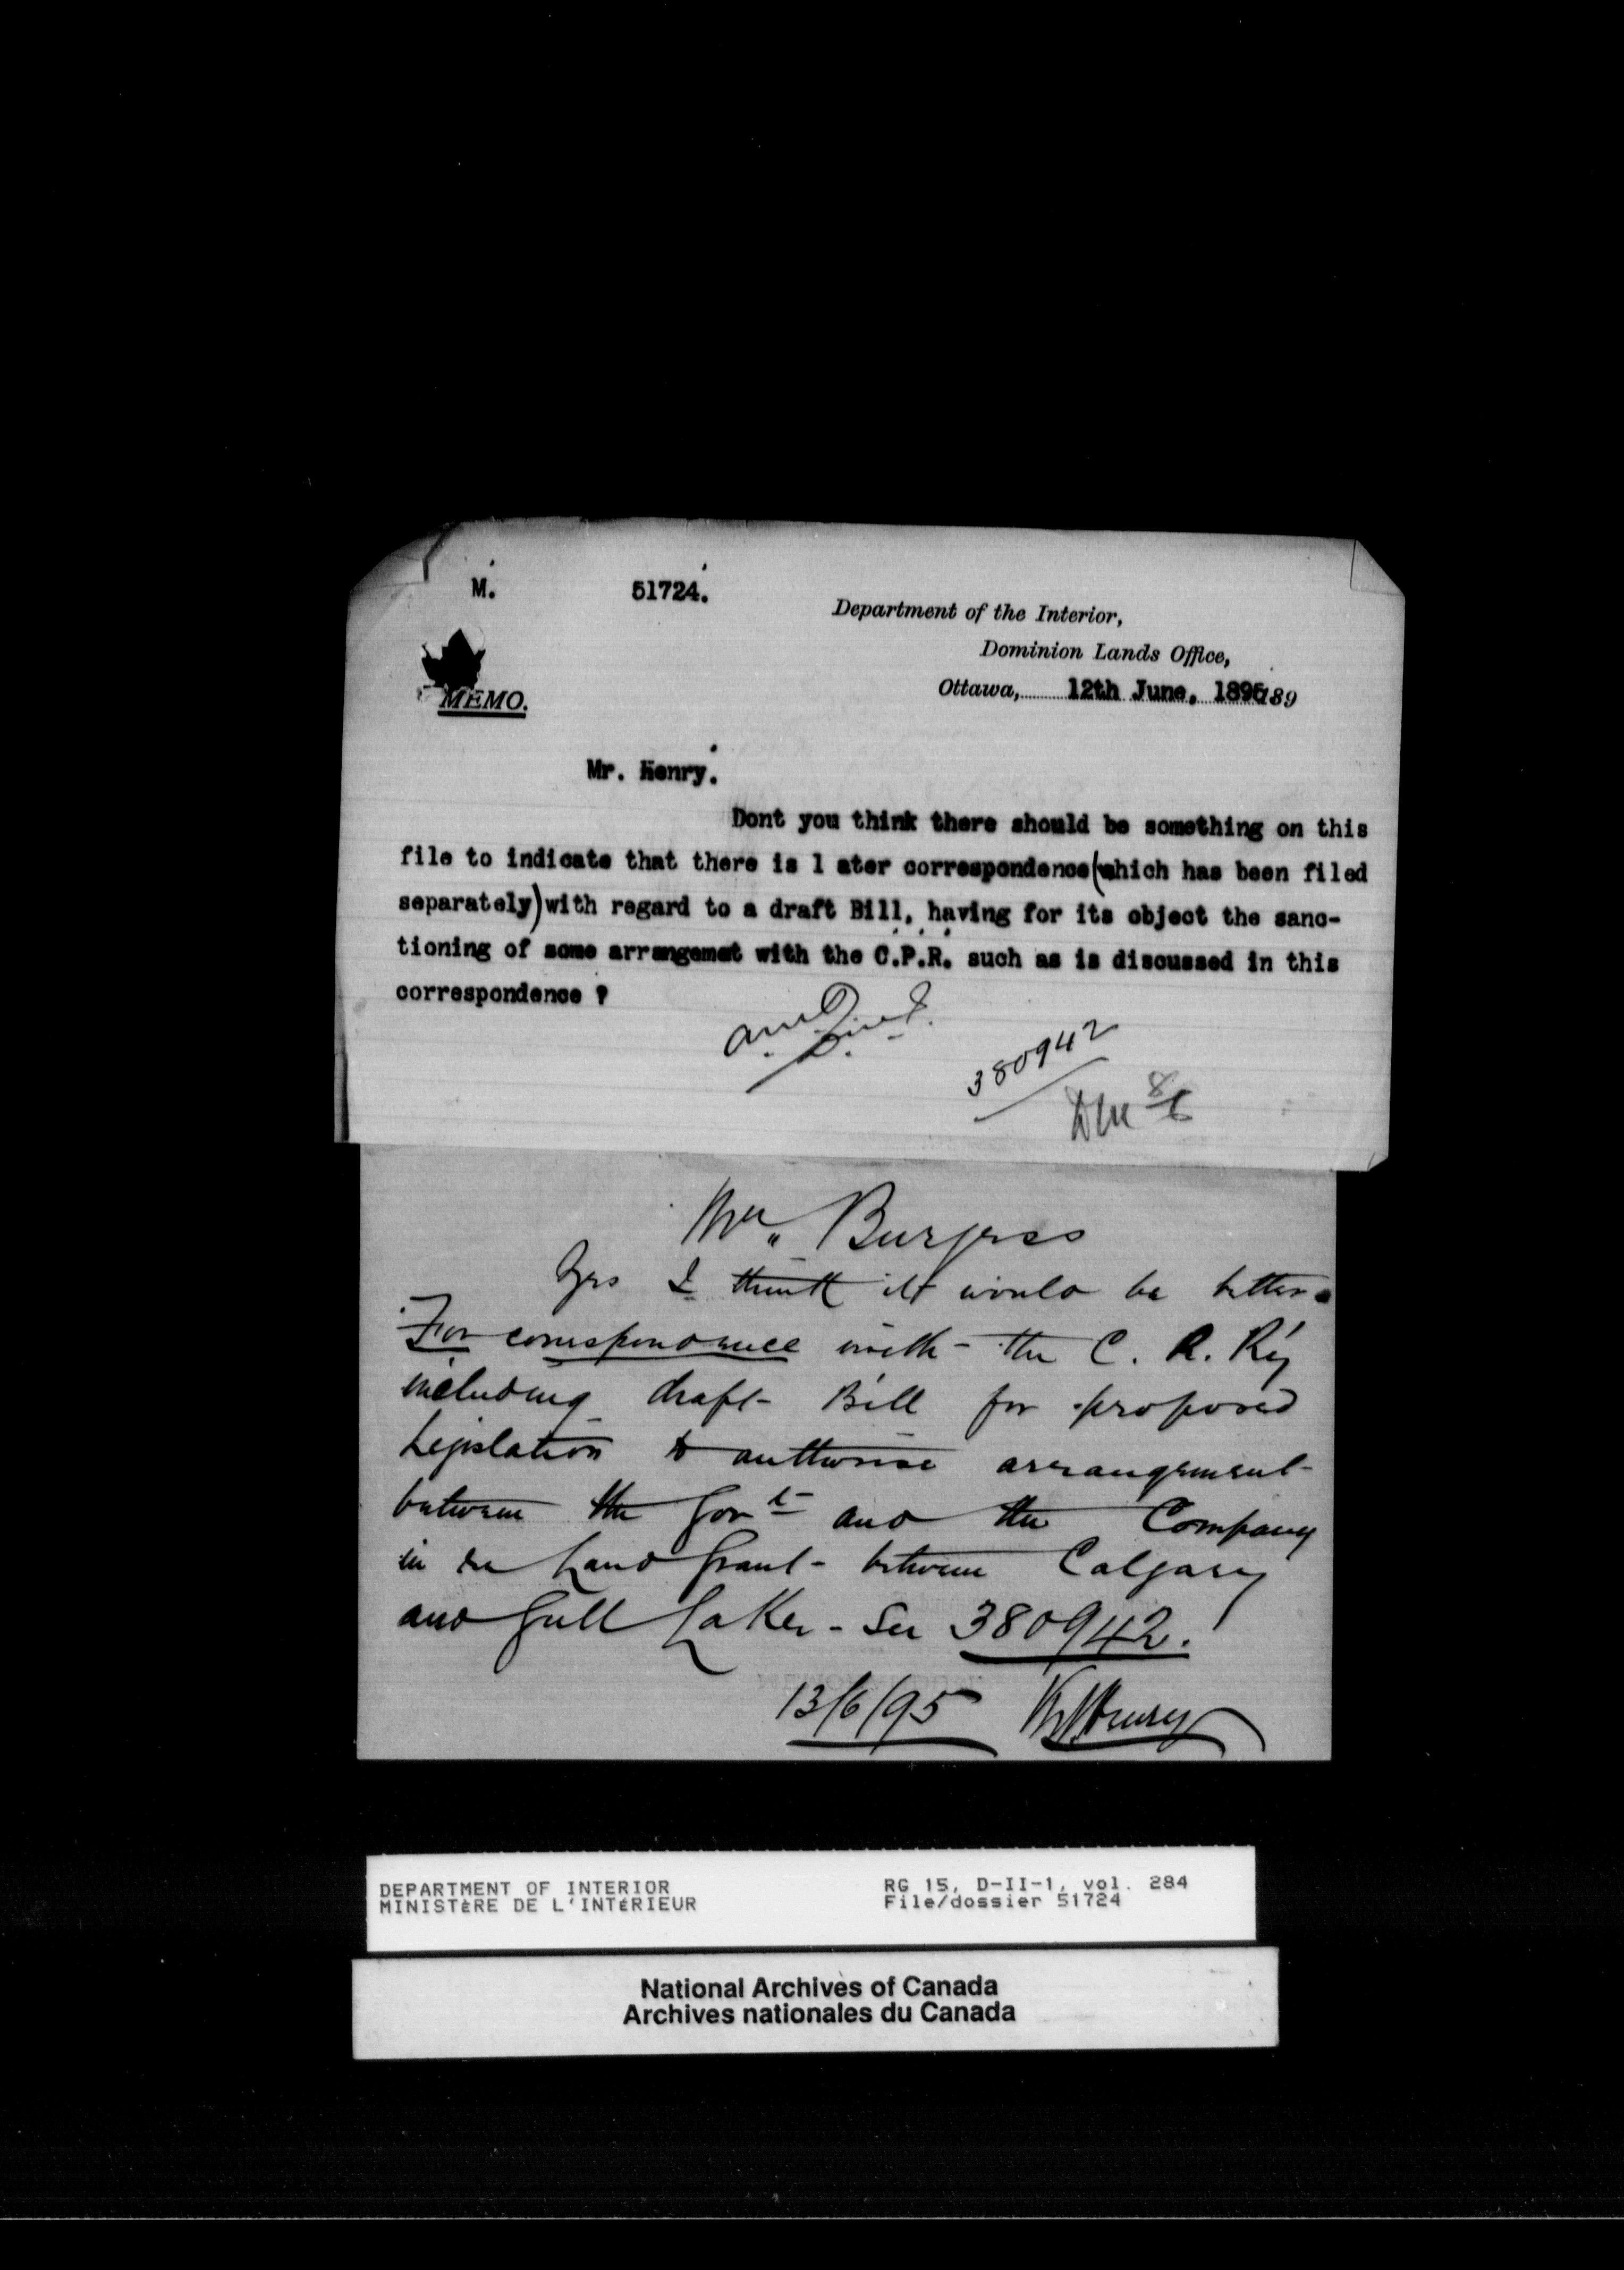 M. 51724.
Department of the Interior,
Dominion Lands Office,
Ottawa, 12th June, 1895 189
MEMO.
Mr. Henry.
Dont you think there should be something on this
file to indicate that there is l ater correspondence (which has been filed
separately) with regard to a draft Bill, having for its object the sanc-
tioning of some arrangemet with the C.P.R. such as is discussed in this
correspondence ?
380942
Mr. Burgess
Yes I think it would be better.
For correspondence with the C. R. Ry
including draft Bill for proposed
Legislation to authorise arrangement
between the Govt and the Company
in re Land Grant - between Calgary
and Gull Lake - See 380942.
13/6/95 Henry
DEPARTMENT OF INTERIOR
MINISTÈRE DE L'INTÉRIEUR
RG 15, D-II-1, vol. 284
File/dossier 51724
National Archives of Canada
Archives nationales du Canada